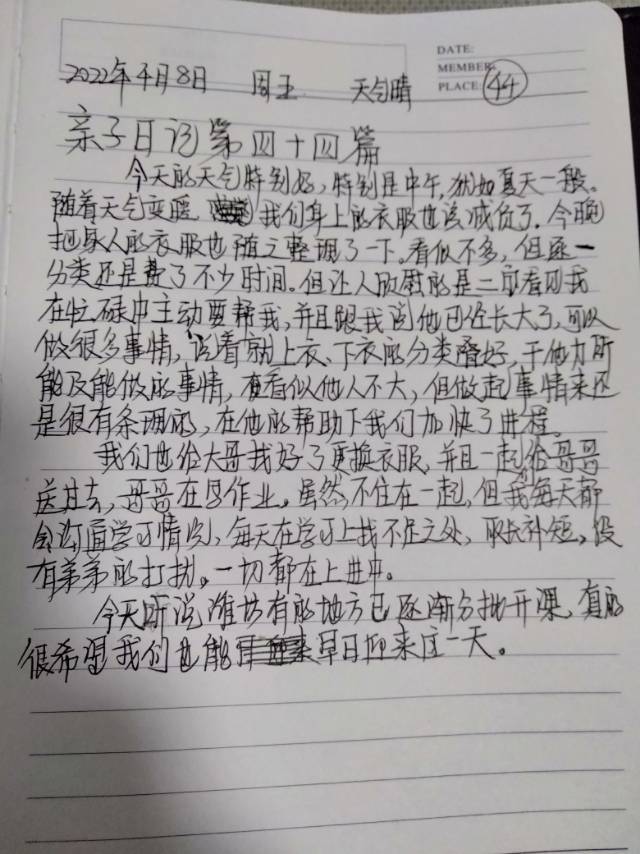 DATE:
MEMBER:
PLACE: 44
2022年4月8日 周五 天气晴
亲子日记第四十四篇
今天的天气特别好,特别是中午,犹如夏天一般。
随着天气变暖,我们身上的衣服也该减负了。今晚
把家人的衣服也随之整理了一下。看似不多,但逐一
分类还是费了不少时间。但让人欣慰的是二郎看见我
在忙碌中主动要帮我,并且跟我说他已经长大了,可以
做很多事情,说着就上衣、下衣的分类叠好,干他力所
能及能做的事情,看似他人不大,但做起事情来还
是很有条理的,在他的帮助下我们加快了进程。
我们也给大哥找好了更换衣服,并且一起给哥哥
送过去,哥哥在写作业。虽然不住在一起,但我每天都
会沟通学习情况,每天在学习上找不足之处,取长补短。没
有弟弟的打扰。一切都在上进中。
今天听说潍坊有的地方已逐渐分批开课,真的
很希望我们也能早日迎来这一天。